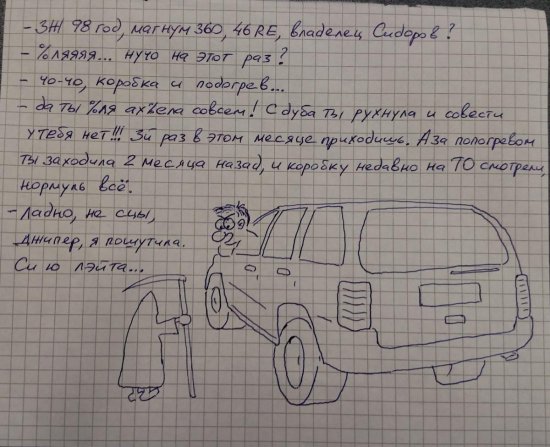 - ЗЖ 98 год, магнум 360, 46RE, владелец Сидоров?
- %ляяяя... нучо на этот раз?
- чо-чо, коробка и подогрев...
- да ты %ля ах%ела совсем! С дуба ты рухнула и совести
у тебя нет!!! 3й раз в этом месяце приходишь. А за подогревом
ты заходила 2 месяца назад, и коробку недавно на ТО смотрели,
нормуль всё.
- Ладно, не сцы,
Джипер, я пошутила.
Си ю лэйта...